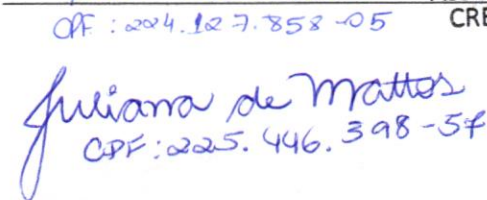 CPF: 224.127.858-05 CRE
Juliana de Mattos
CPF: 225.446.398-57